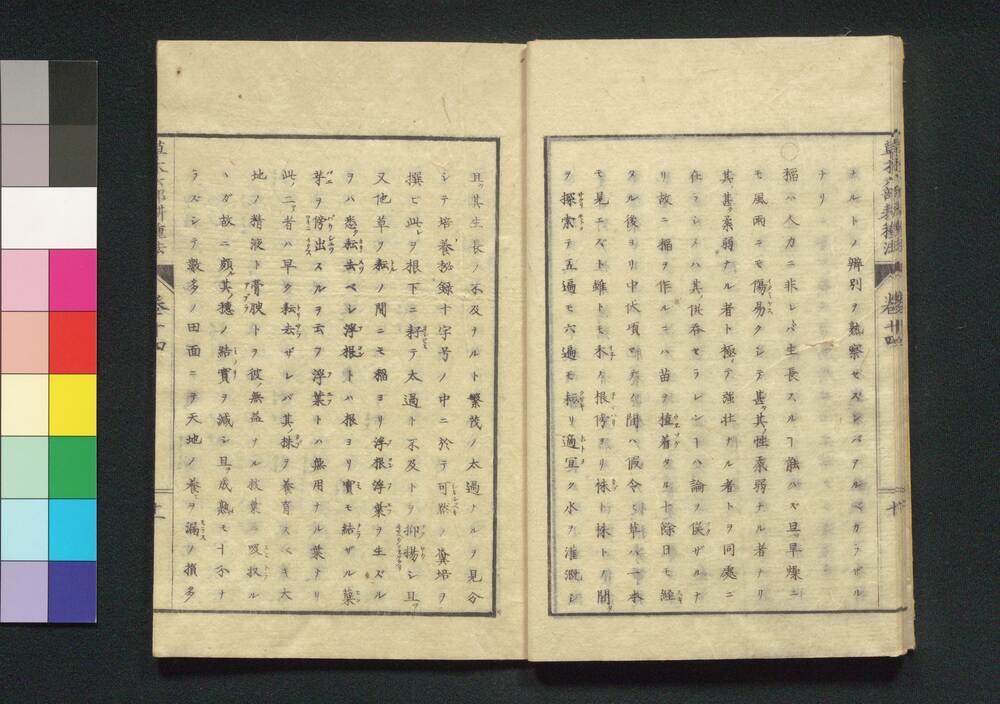 草木六部耕種法 巻十四 十
ナルトノ辨別ヲ熟察セズンバアルベカラザル
ナリ
○稲ハ人力ニ非レバ生長スルヿ能ハズ且ッ旱燥ニ
モ風雨ニモ傷易クシテ甚ッ其ノ性柔弱ナル者ナリ
其ノ甚柔弱ナル者ト極ァテ強壮ナル者トヲ同處ニ
在ラシメハ其ノ供呑セラレンヿハ論ヲ俟ザルナ
リ故ニ稲ヲ作ルニハ苗ヲ植着ケタル十餘日モ經
タル後ヨリ中伏頃マデノ間ハ假令ヒ草ハ一本
モ見エズト雖トモ禾ノ根傍ヨリ株ト株トノ間
ヲ探索テ五遍モ六遍モ極リ適冥ク水ヲ灌漑シ
且ッ其生長ヲ不及ヲルト繁茂ノ太過ナルヲ見分
シテ培養秘録十字号ノ中ニ於テ可然ノ糞培ヲ
撰ビ此レヲ根下ニ耔テ太過ト不及トヲ抑揚シ且ッ
又他草ヲ耘ノ間ニモ稲ヨリ浮根浮葉ヲ生ズル
ヲハ悉ク耘去ベシ浮根トハ根ヨリ實モ結ザル蘖
芽ヲ傍出スルヲ云フ浮葉トハ無用ナル葉ナリ
此ノ二者ハ早ク耘去ザレバ其ノ株ヲ養育スベキ大
地ノ精液ト膏腴トヲ彼ノ無益ナル枝葉ニ吸収ル
ヽガ故ニ頗ル其ノ穂ノ結實ヲ減シ且ッ成熟モ十分ナ
ラズシテ數多ノ田面ニテ天地ノ養ヒヲ漏ノ損多
草木六部耕種法 巻十四 十一